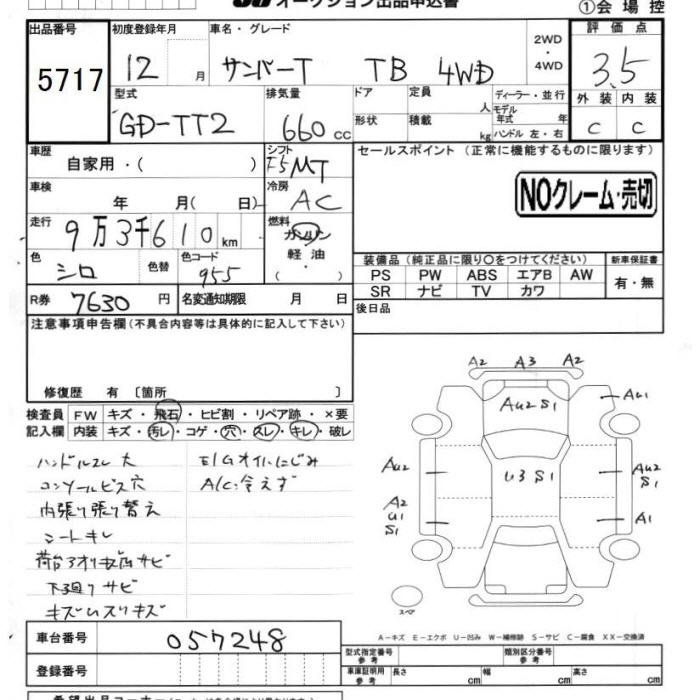 オークション出品申込書
①会場控
出品番号 初度登録年月 車名・グレード 2WD 評価点
5717 12 月 サンバーT TB 4WD ・4WD 3.5
型式 排気量 ドア 定員 人 ディーラー・並行 外装 内装
GD-TT2 660 cc 形状 積載 kg モデル年式 年 C C
ハンドル 左・右
車歴 シフト セールスポイント (正常に機能するものに限ります)
自家用・( ) F5 MT
車検 冷房 NOクレーム・売切
年 月( 日) AC
走行 燃料
9万3千610km ガソリン
色 色替 色コード 軽油 装備品 (純正品に限り○をつけてください) 新車保証書
シロ 955 ( ・ ) PS PW ABS エアB AW 有・無
R券 名変通知期限 月 日 SR ナビ TV カワ
7630 円 後日品
注意事項申告欄(不具合内容等は具体的に記入して下さい)
修復歴 有 〔箇所 〕
検査員 FW キズ・飛石・ヒビ割・リペア跡・×要
記入欄 内装 キズ・汚レ・コゲ・穴・スレ・キレ・破レ
ハンドルスレ大 E/Gオイルにじみ
コンソールビス穴 A/C冷えず
内張り張り替え
シートキレ
サビ
下廻りサビ
A2 A3 A2
Au2 S1
Au1
Au2 U3 S1 Au2 S1
A2 U1 S1 A1
スペア
A-キズ E-エクボ U-凹み W-補修跡 S-サビ C-腐食 XX-交換済
車台番号 057248
型式指定番号 参考 類別区分番号 参考
登録番号 車庫証明用 参考 長さ cm 幅 cm 高さ cm